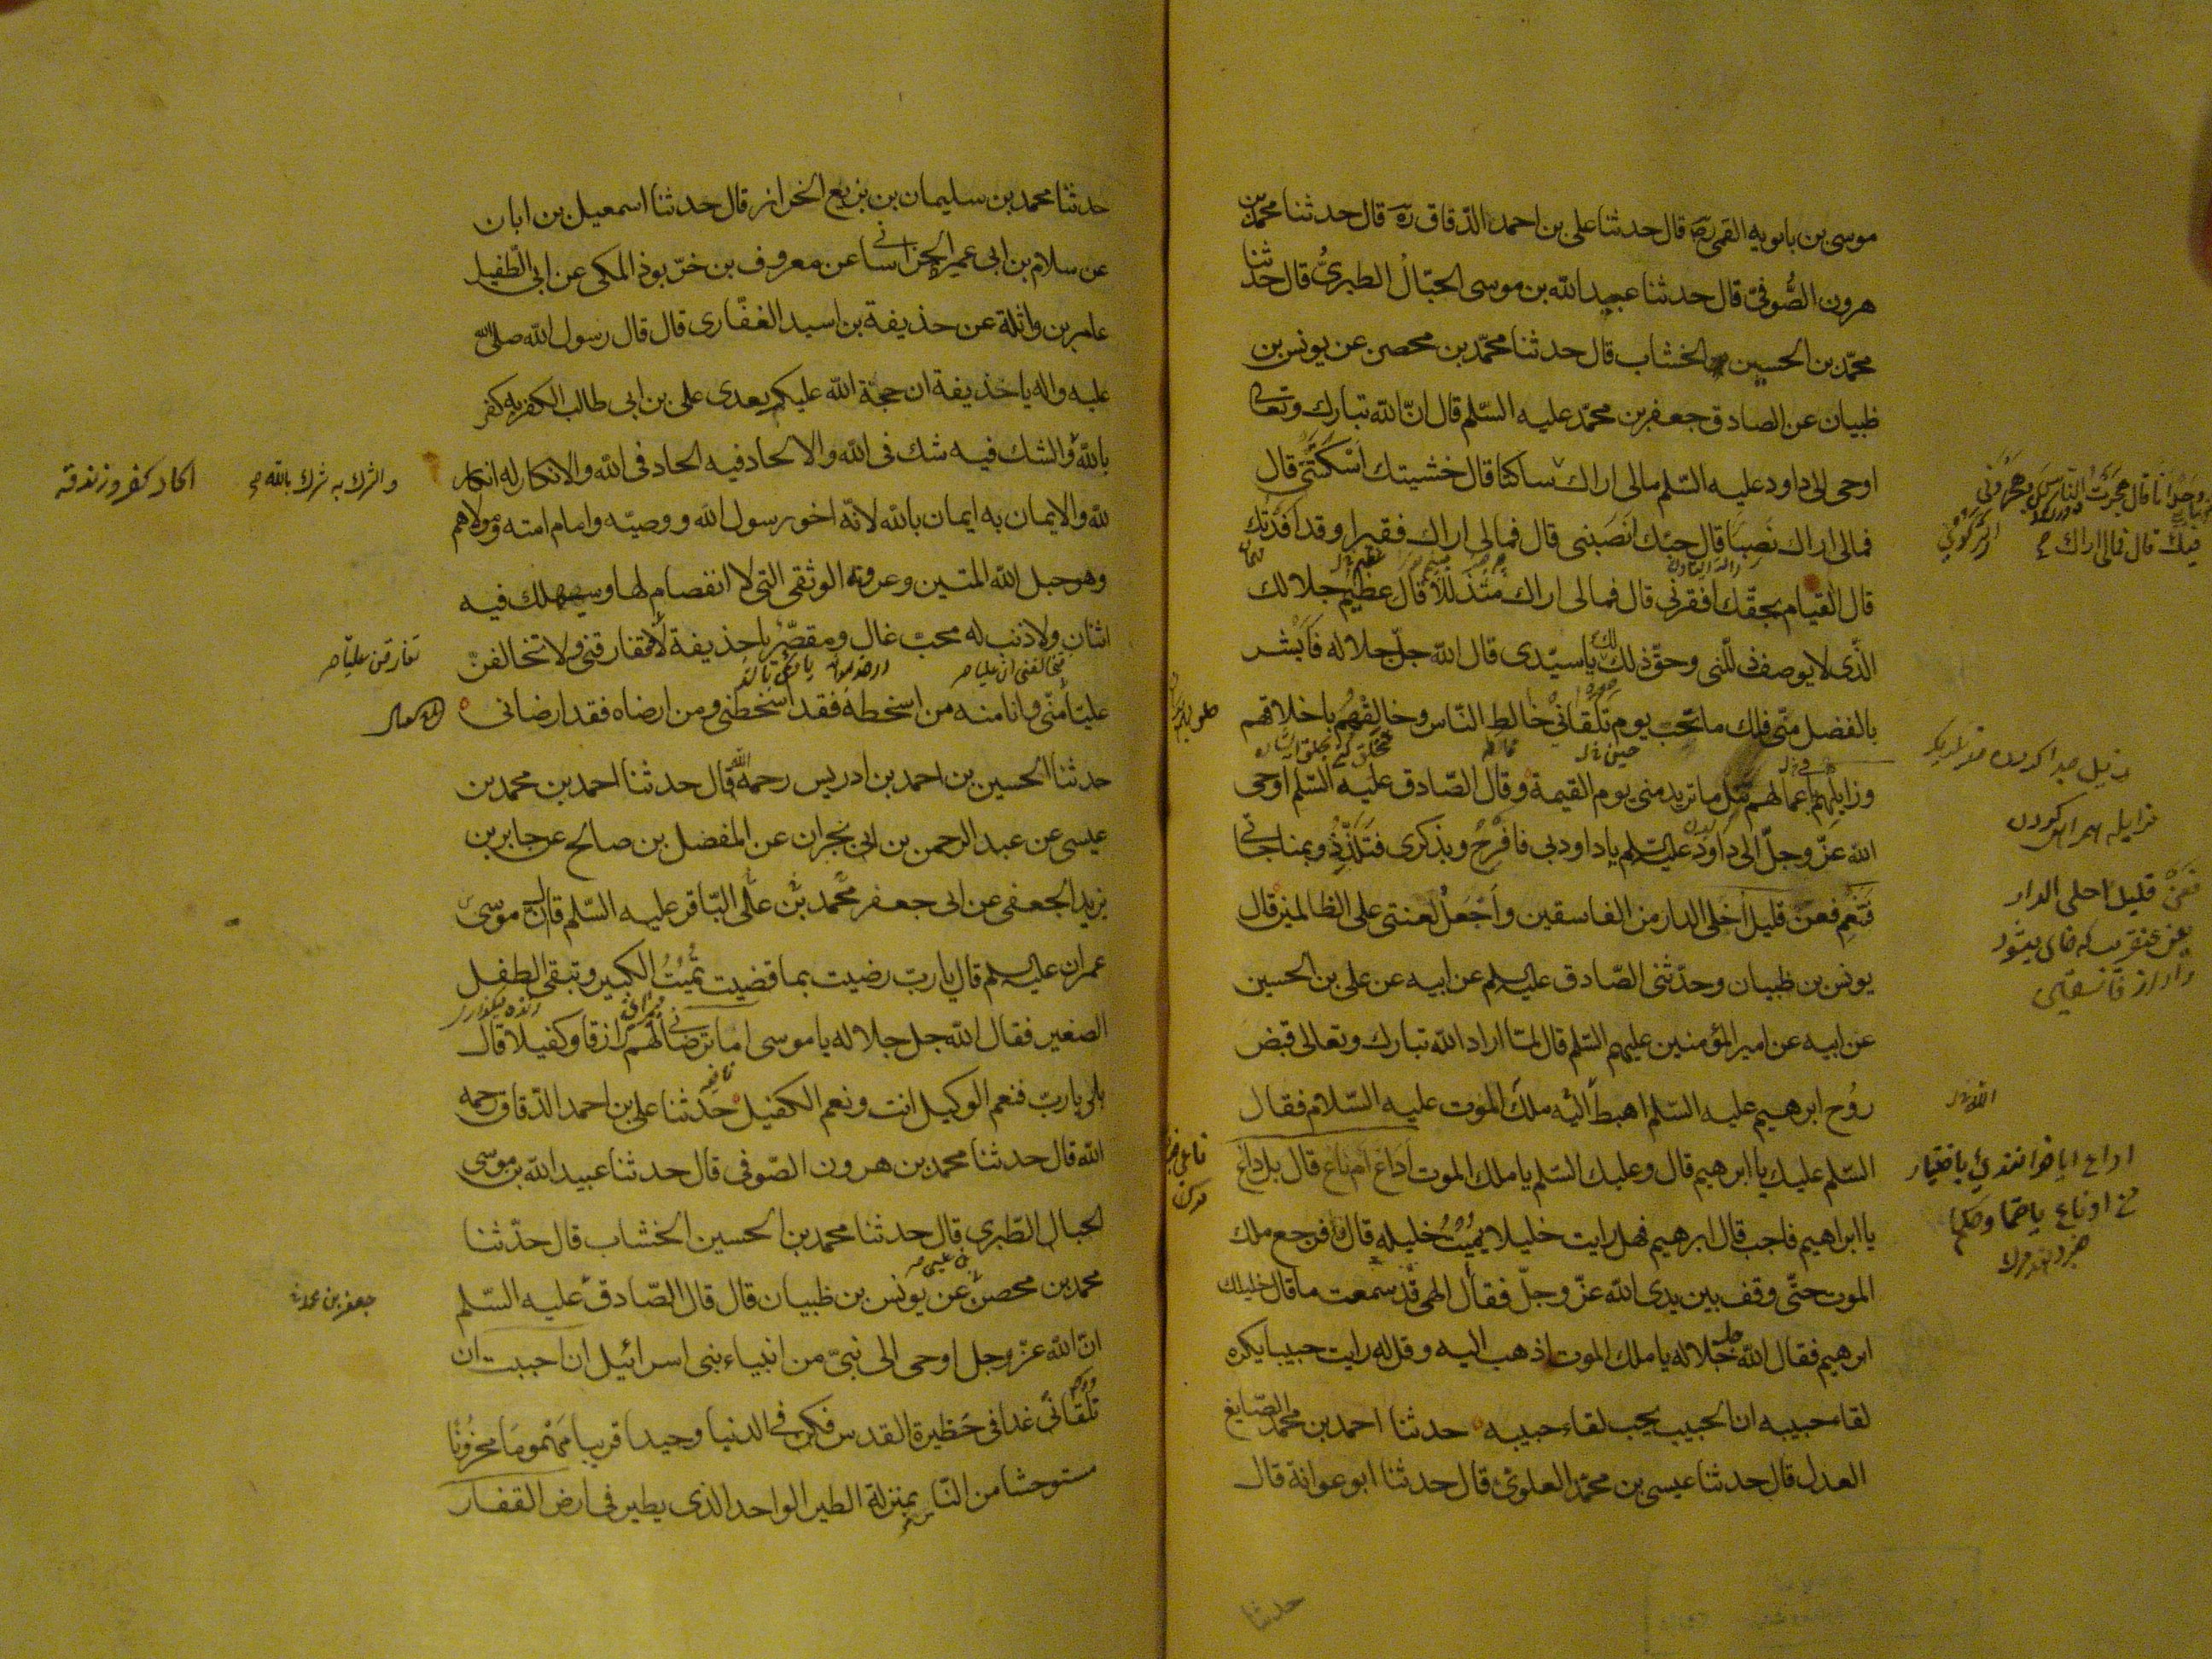 موسى بن بابويه القمى رض قال حدثنا على بن احمد الدّقاق ره قال حدثنا محمد بن
هرون الصُّوفىّ قال حدثنا عبيد الله بن موسى الحبّالُ الطبرىُّ قال حدثنا
محمّد بن الحسين الخشاب قال حدثنا محمّد بن محصن عن يونس بن
ظبيان عن الصادق جعفر بن محمّد عليه السّلم قال انّ الله تبارك وتعالى
اوحى الى داود عليه السّلم مالى اراك ساكتا قال خشيتك اسْكَتَتْنى قال
فمالى اراك نَصِبًا قال حبّك انصَبَنى قال فمالى اراك فقيرا وقد افَدْتُك
قال القيام بحقّك افقرنى قال فمالى اراك مُتَذلّلًا قال عظيم جلالك
الّذى لا يوصف ذلّلنى وحقّ ذلك لك يا سيّدى قال الله جلّ جلاله فَاَبْشر
بالفضل منّى فلك ما تحّب يوم تلقانى خالط النّاس وخالِقْهُم باخلاقهم
وزايلهم باعمالهم تنل ما تريد منى يوم القيمة وقال الصّادق عليه السّلم اوحى
الله عَزّ وجلّ الى داود عليه السّلم يا داود بى فافْرَحْ وبذكرى فتَلَذّذْ وبمناجاتى
فَتَنعّم فعن قليل اخلى الدار من الفاسقين واَجْعَلُ لعنتى على الظالمين قال
يونس بن ظبيان وحدّثنى الصّادق عليه السلم عن ابيه عن على بن الحسين
عن ابيه عن امير المؤمنين عليهم السّلم قال لمّا اراد الله تبارك وتعالى قبضَ
رُوح ابرهيم عليه السّلم اهبط اليْه ملكَ الموت عليه السّلام فقال
السّلم عليك يا ابرهيم قال وعليك السّلم يا ملك الموت اَداعٍ ام ناعٍ قال بل داعٍ
يا ابراهيم فاجب قال ابرهيم فهل رايت خليلا يُميتُ خليله قال فرجع ملك
الموت حتّى وقف بين يدى الله عزّ وجلّ فقال الهى قد سمعت ما قال خليلك
ابرهيم فقال الله جل جلاله يا ملك الموت اذهب اليه وقل له رايت حبيبا يكره
لقاء حبيبه ان الحبيب يحب لقاء حبيبه حدثنا احمد بن محمد الصّايغ
العدل قال حدثنا عيسى بن محمّد العلوىّ قال حدثنا ابو عوانة قال
حدثنا
فيك قال فمالى اراك
فعَنْ قليل اخلى الدار
حدثنا محمد بن سليمان بن بزيع الخراز قال حدثنا اسمعيل بن ابان
عن سلام بن ابى عمير الخراسانى عن معروف بن خرّبوذ المكى عن ابى الطّفيل
عامر بن واثلة عن حذيفة بن اسيد الغفّارى قال قال رسول الله صلى الله
عليه واله يا حذيفة ان حجّة الله عليكم بعدى على بن ابى طالب الكفر به كفر
بالله والشك فيه شك فى الله والالحاد فيه الحاد فى الله والانكار له انكار
لله والايمان به ايمان بالله لانّه اخو رسول الله ووصيّه وامام امته ومولاهم
وهو حبل الله المتين وعروته الوثقى التى لا انفصام لها وسيهلك فيه
اثنان ولا ذنب له محبّ غال ومقصّر يا حذيفة لا تفارقنّ ولا تخالفنّ
عليّا منّى وانا منه من اسخطهُ فقد اسخطنى ومن ارضاه فقد ارضانى
حدثنا الحسين بن احمد بن ادريس رحمه الله قال حدثنا احمد بن محمد بن
عيسى عن عبد الرحمن بن ابى نجران عن المفضل بن صالح عن جابر بن
يزيد الجعفى عن ابى جعفر محمد بن على البّاقر عليه السّلم قال ان موسى
عمران عليه السلم قال يا ربّ رضيت بما قضيت تُميتُ الكبير وتبقى الطفل
الصغير فقال الله جل جلاله يا موسى اما ترضانى لهم رازقا وكفيلا قال
بلى يا ربّ فنعم الوكيل انت ونعم الكفيل حدثنا على بن احمد الدّقاق رحمه
الله قال حدثنا محمد بن هرون الصّوفى قال حدثنا عبيد الله بن موسى
الحبال الطّبرى قال حدثنا محمد بن الحسين الخشاب قال حدّثنا
محمد بن محصن عن يونس بن ظبيان قال قال الصّادق عليه السّلم
انّ الله عزّ وجل اوحى الى نبىّ من انبياء بنى اسرائيل ان احببت ان
تلقانى غدا فى حَظيرة القدس فكن فى الدنيا وحيدا غريبا مَهْمومًا محزُونًا
مستوحشا من النّاس بمنزلة الطير الواحد الذى يطير فى ارض القفار
والشرك به شرك بالله
الحاد كفر وزندقه
جعفر بن محمد